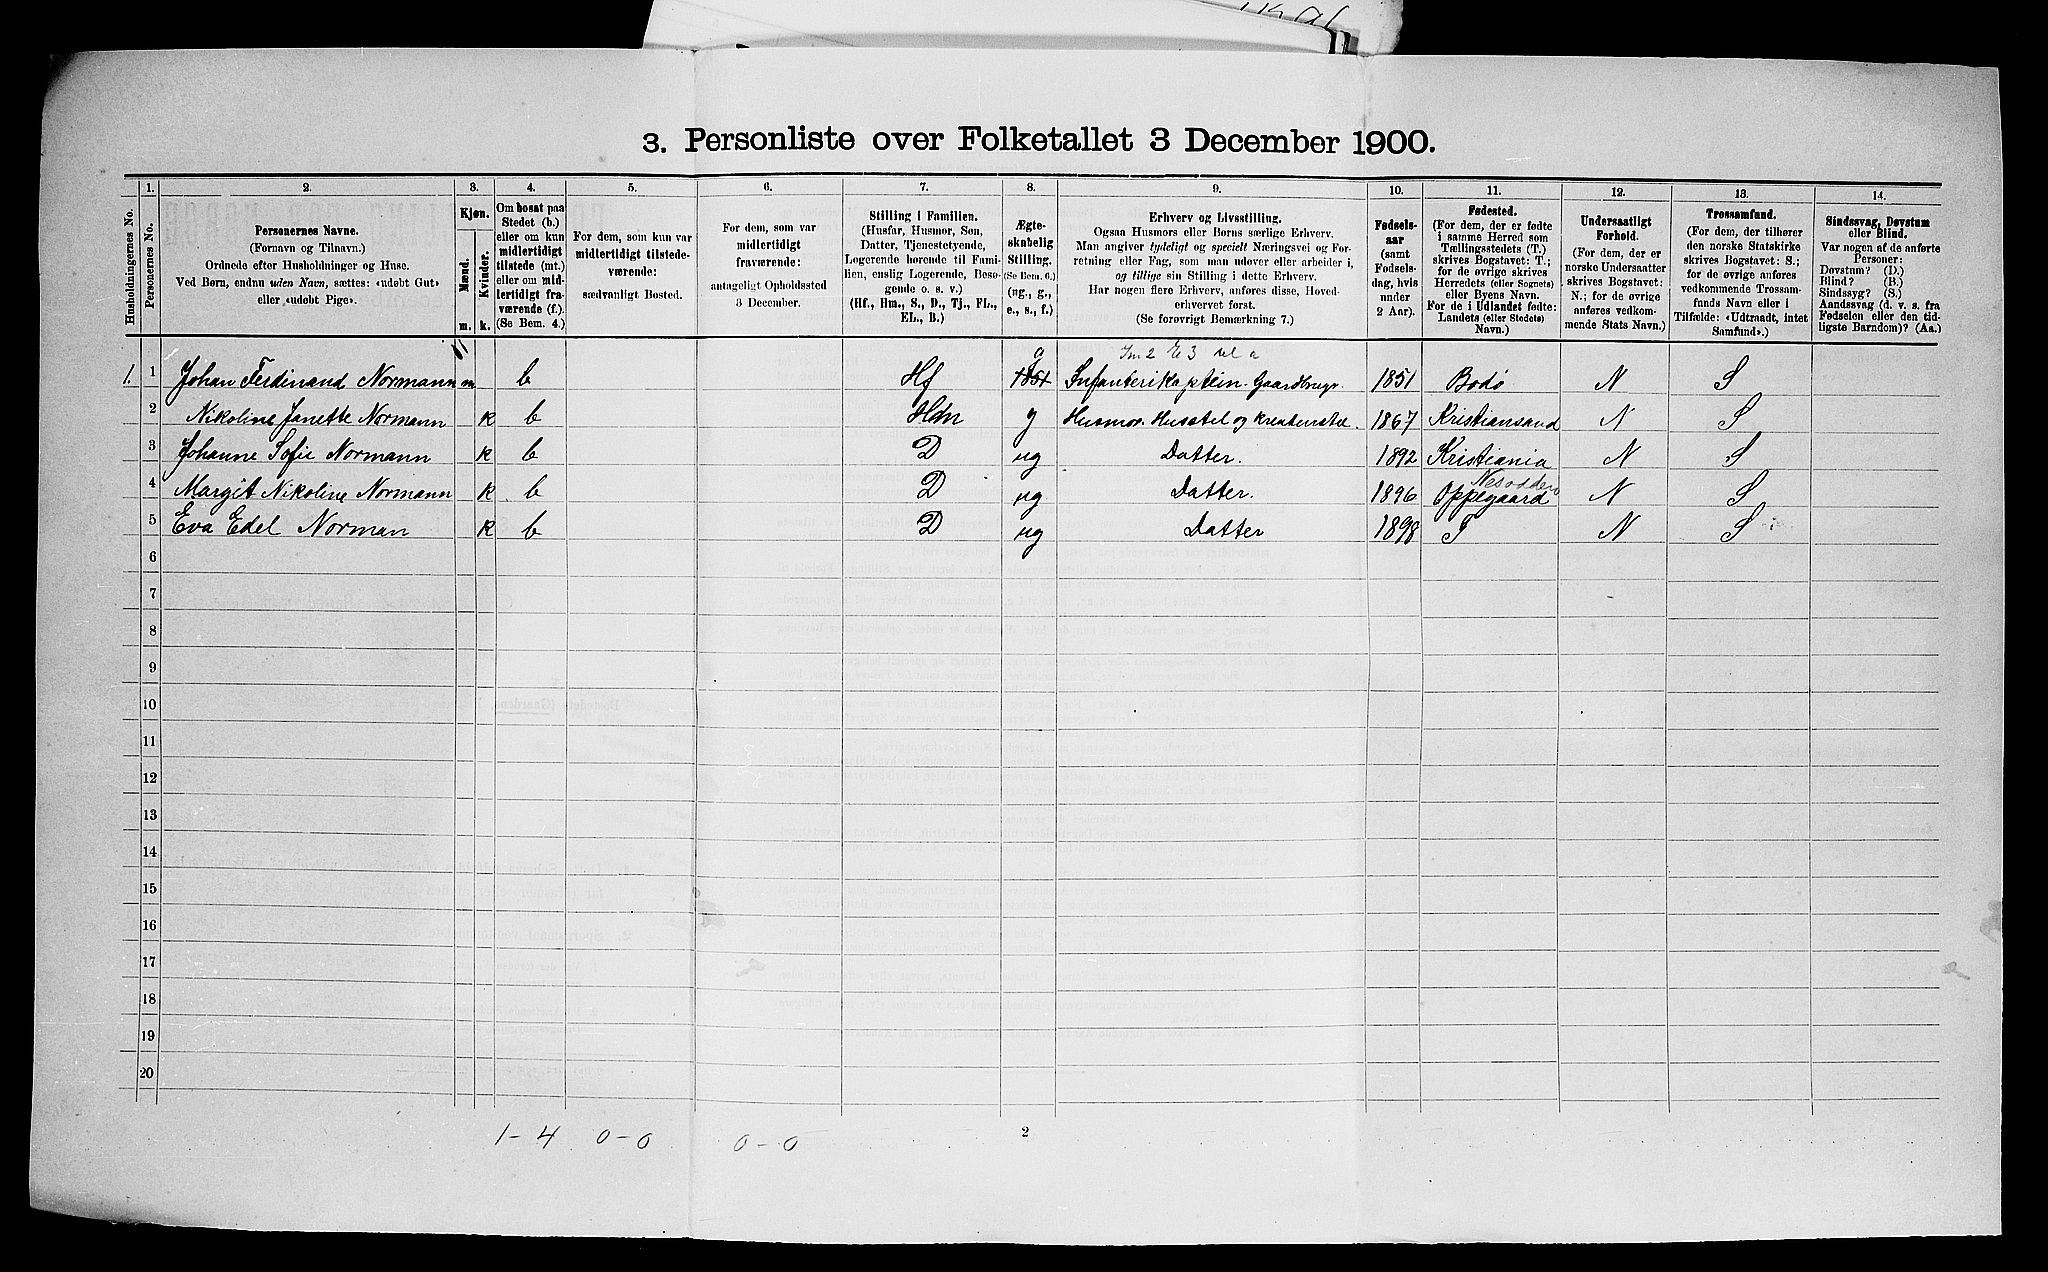 3. Personliste over Folketallet 3 December 1900.
Husholdningernes No.
1.
Personernes No.
2.
Personernes Navne.
(Fornavn og Tilnavn.)
Ordnede efter Husholdninger og Huse.
Ved Børn, endnu uden Navn, sættes: «udøbt Gut»
eller «udøbt Pige».
3.
Kjøn.
Mænd.
Kvinder.
m.
k.
4.
Om bosat paa
Stedet (b.)
eller om kun
midlertidigt
tilstede (mt.)
eller om mid-
lertidigt fra-
værende (f.).
(Se Bem. 4.)
5.
For dem, som kun var
midlertidigt tilstede-
værende:
sædvanligt Bosted.
6.
For dem, som var
midlertidigt
fraværende:
antageligt Opholdssted
3 December.
7.
Stilling i Familien.
(Husfar, Husmor, Søn,
Datter, Tjenestetyende,
Logerende hørende til Fami-
lien, enslig Logerende, Besø-
gende o. s. v.)
(Hf., Hm., S., D., Tj., FL.,
EL., B.)
8.
Ægte-
skabelig
Stilling.
(Se Bem. 6.)
(ug., g.,
e., s., f.)
9.
Erhverv og Livsstilling.
Ogsaa Husmors eller Børns særlige Erhverv.
Man angiver tydeligt og specielt Næringsvei og For-
retning eller Fag, som man udover eller arbeider i,
og tillige sin Stilling i dette Erhverv.
Har nogen flere Erhverv, anføres disse, Hoved-
erhvervet først.
(Se forøvrigt Bemærkning 7.)
10.
Fødsels-
aar
(samt
Fødsels-
dag, hvis
under
2 Aar).
11.
Fødested.
(For dem, der er fødte
i samme Herred som
Tællingsstedets (T.)
skrives Bogstavet: T.;
for de øvrige skrives
Herredets (eller Sognets)
eller Byens Navn.
For de i Udlandet fødte:
Landets (eller Stedets)
Navn.)
12.
Undersaatligt
Forhold.
(For dem, der er
norske Undersaatter
skrives Bogstavet:
N.; for de øvrige
anføres vedkom-
mende Stats Navn.)
13.
Trossamfund.
(For dem, der tilhører
den norske Statskirke
skrives Bogstavet: S.;
for de øvrige anføres
vedkommende Trossam-
funds Navn eller i
Tilfælde: «Udtraadt, intet
Samfund».)
14.
Sindssvag, Døvstum
eller Blind.
Var nogen af de anførte
Personer:
Døvstum? (D.)
Blind? (B.)
Sindssyg? (S.)
Aandssvag (d. v. s. fra
Fødselen eller den tid-
ligste Barndom)? (Aa.)
g
1. 1 Johan Ferdinand Normann m b Hf 1851 Infanterikaptein. Gaardbruger 1851 Bodø N S
2 Nikoline Janette Normann k b Hm g Husmor. Husstel og kreaturstel. 1867 Kristiansand N S
3 Johanne Sofie Normann k b D ug Datter. 1892 Kristiania N S
Nesodden
4 Margit Nikoline Normann k b D ug Datter. 1896 Oppegaard N S
5 Eva Edel Norman k b D ug Datter 1898 T N S
6
7
8
9
10
11
12
13
14
15
16
17
18
19
20
1-4 0-0 0-0
2